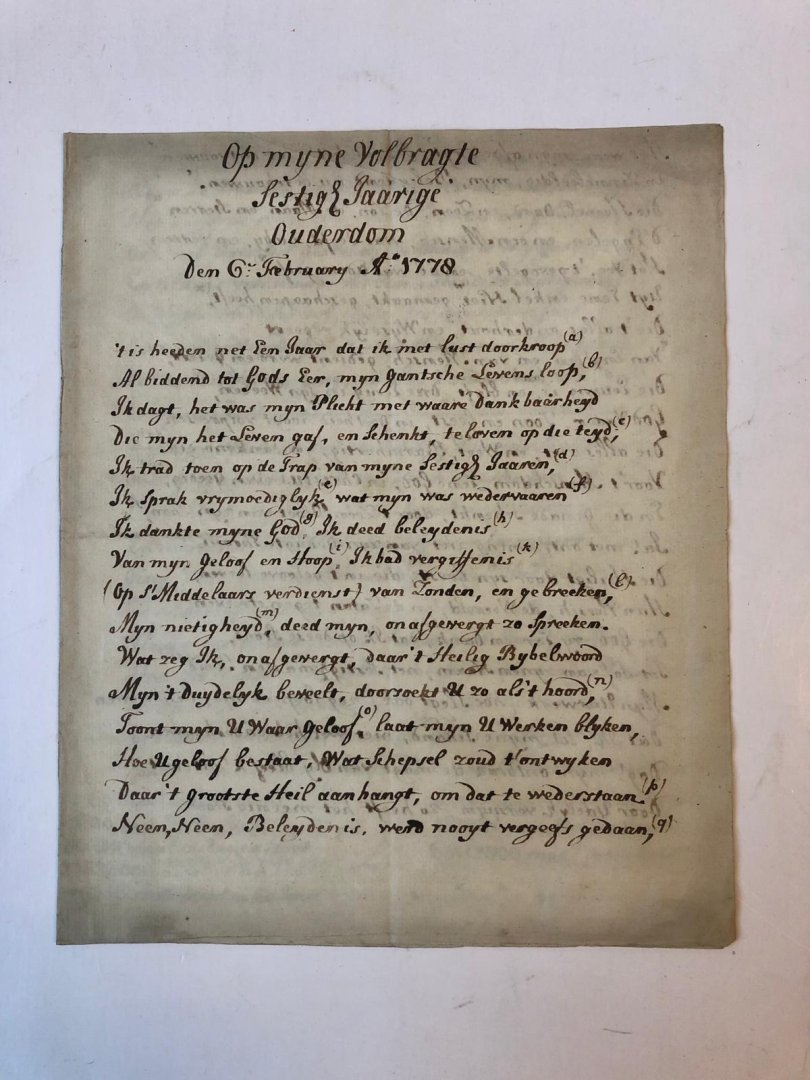 Op myne Volbragte
Sestig Jaarige
Ouderdom
Den 6.e February A.o 1778
't is heeden net Een Jaar dat ik met lust doorkroop (a)
Al biddend tot Gods Eer, myn gantsche Levens loop, (b)
Ik dagt, het was myn Plicht met waare dankbaarheyd
Die myn het Leven gaf, en Schenkt, te loven op die teyd, (c)
Ik trad toen op de Trap van myne Sestig Jaaren, (d)
Ik Sprak vrymoediglyk (e) wat myn was wedervaaren (f)
Ik dankte myne God, (g) Ik deed beleydenis (h)
Van myn geloof en Hoop (i), Ik bad vergiffenis (k)
(Op S' Middelaars verdienst) van Zonden, en gebreeken, (l)
Myn nietigheyd, (m) deed myn, onafgevergt zo Spreeken.
Wat zeg Ik, onafgevergt, daar 't Heilig Bybelwoord
Myn 't Duydelyk beveelt, doorsoekt U zo als 't hoord, (n)
Toont myn U Waar geloof, (o) laat myn U Werken blyken,
Hoe U geloof bestaat, Wat Schepsel zoud t'ontwyken
Daar 't grootste Heil aanhangt, om dat te wederstaan (p)
Neen, Neen, Beleydenis, werd nooyt vergeefs gedaan, (q)